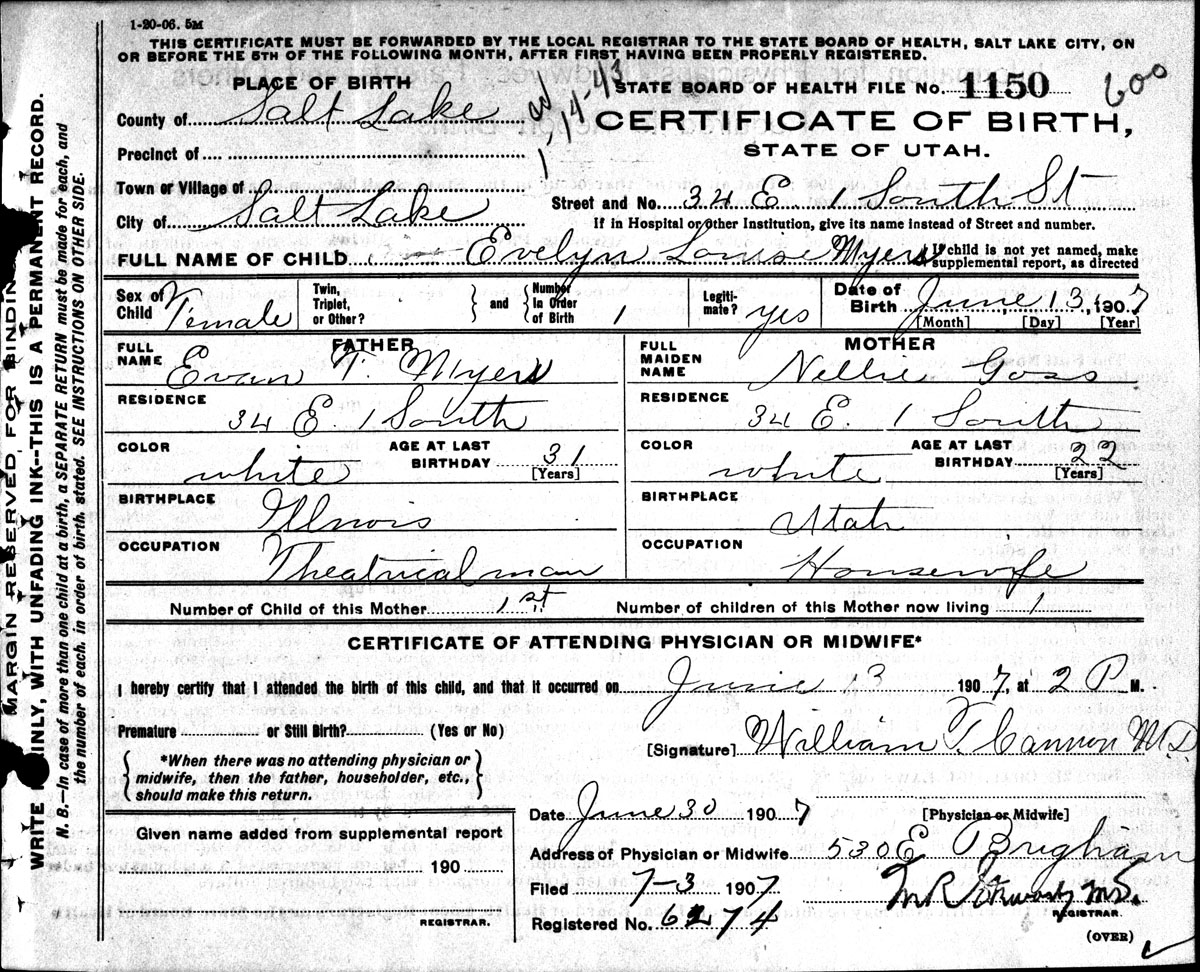 1-20-06. 5M
THIS CERTIFICATE MUST BE FORWARDED BY THE LOCAL REGISTRAR TO THE STATE BOARD OF HEALTH, SALT LAKE CITY, ON
OR BEFORE THE 5TH OF THE FOLLOWING MONTH, AFTER FIRST HAVING BEEN PROPERLY REGISTERED.
MARGIN RESERVED FOR BINDIN
WRITE INLY, WITH UNFADING INK--THIS IS A PERMANENT RECORD.
N. B.—In case of more than one child at a birth, a SEPARATE RETURN must be made for each, and
the number of each, in order of birth, stated. SEE INSTRUCTIONS ON OTHER SIDE.
PLACE OF BIRTH
1-14-43
STATE BOARD OF HEALTH FILE No. 1150
600
County of Salt Lake
CERTIFICATE OF BIRTH,
Precinct of
STATE OF UTAH.
Town or Village of
City of Salt Lake
Street and No. 34 E 1 South St
If in Hospital or Other Institution, give its name instead of Street and number.
FULL NAME OF CHILD Evelyn Louise Myers
If child is not yet named, make
supplemental report, as directed
Sex of Child Female
Twin, Triplet, or Other?
and
Number In Order of Birth 1
Legiti-mate? yes
Date of Birth June 13, 1907
[Month] [Day] [Year]
FATHER
FULL NAME Evan T. Myers
RESIDENCE 34 E. 1 South
COLOR white
AGE AT LAST BIRTHDAY 31
[Years]
BIRTHPLACE Illnois
OCCUPATION Theatrical man
MOTHER
FULL MAIDEN NAME Nellie Goss
RESIDENCE 34 E. 1 South
COLOR white
AGE AT LAST BIRTHDAY 22
[Years]
BIRTHPLACE Utah
OCCUPATION Housewife
Number of Child of this Mother 1st
Number of children of this Mother now living 1
CERTIFICATE OF ATTENDING PHYSICIAN OR MIDWIFE*
I hereby certify that I attended the birth of this child, and that it occurred on June 13 1907, at 2 P M.
Premature or Still Birth? (Yes or No)
[Signature] William T. Cannon M D.
*When there was no attending physician or
midwife, then the father, householder, etc.,
should make this return.
[Physician or Midwife]
Date June 30 1907
Given name added from supplemental report
190
REGISTRAR.
Address of Physician or Midwife 530 E Brigham
Filed 7-3 1907
M R M.D.
REGISTRAR.
Registered No. 6274
(OVER)